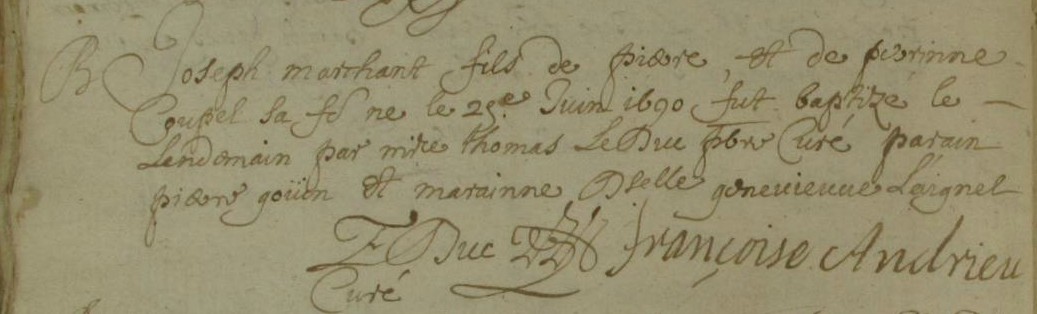 B Joseph marchant fils de pierre, et de perrinne
Coupel sa fe ne le 25e. Juin 1690 fut baptize le
Lendemain par mire thomas Le Duc pbre Curé parain
pierre goüin et marainne Dselle genevieuue Laignel
Le Duc françoise Andrieu
Curé